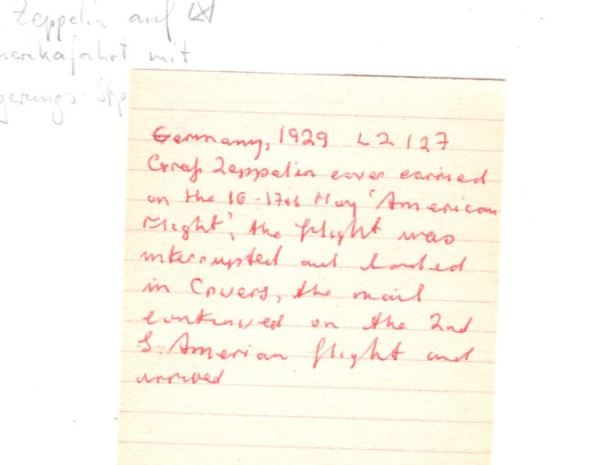 Zeppelin auf
merikafahrt mit
gerungs-Stp
Germany, 1929 LZ 127
Graf Zeppelin cover carried
on the 16-17th May 'American
Flight', the flight was
interrupted and landed
in Cruers, the mail
continued on the 2nd
S. Amerian flight and
arrived